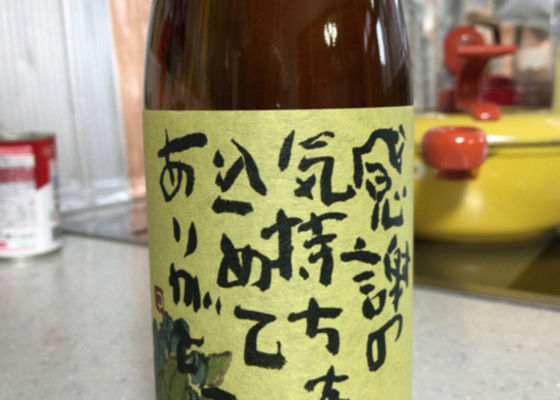 感謝の
気持ちを
込めて
ありがと